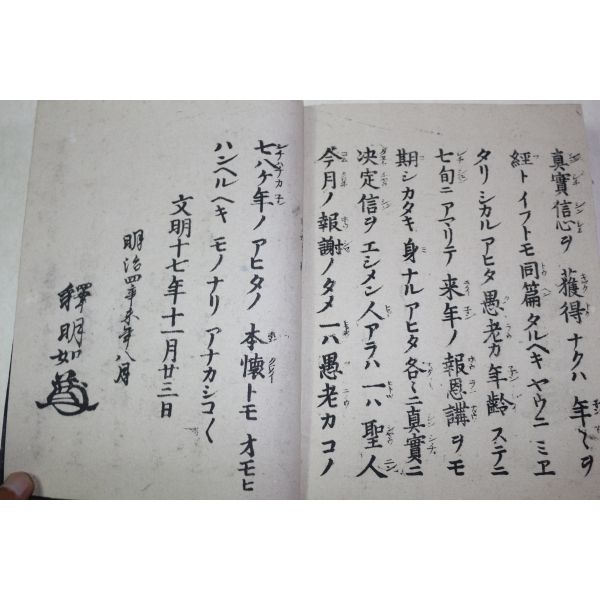 真實信心ヲ獲得ナクハ年〱ヲ
經トイフトモ同篇タルヘキヤウニミヱ
タリシカルアヒタ愚老カ年齡ステニ
七旬ニアマリテ来年ノ報恩講ヲモ
期シカタキ身ナルアヒタ各〱ニ真實ニ
决定信ヲエシメン人アラハ一ハ聖人
今月ノ報謝ノタメ一ハ愚老カコノ
七八ケ年ノアヒタノ本懷トモオモヒ
ハンヘルヘキモノナリアナカシコ〱
文明十七年十一月廿三日
明治四辛未年八月
釋明如